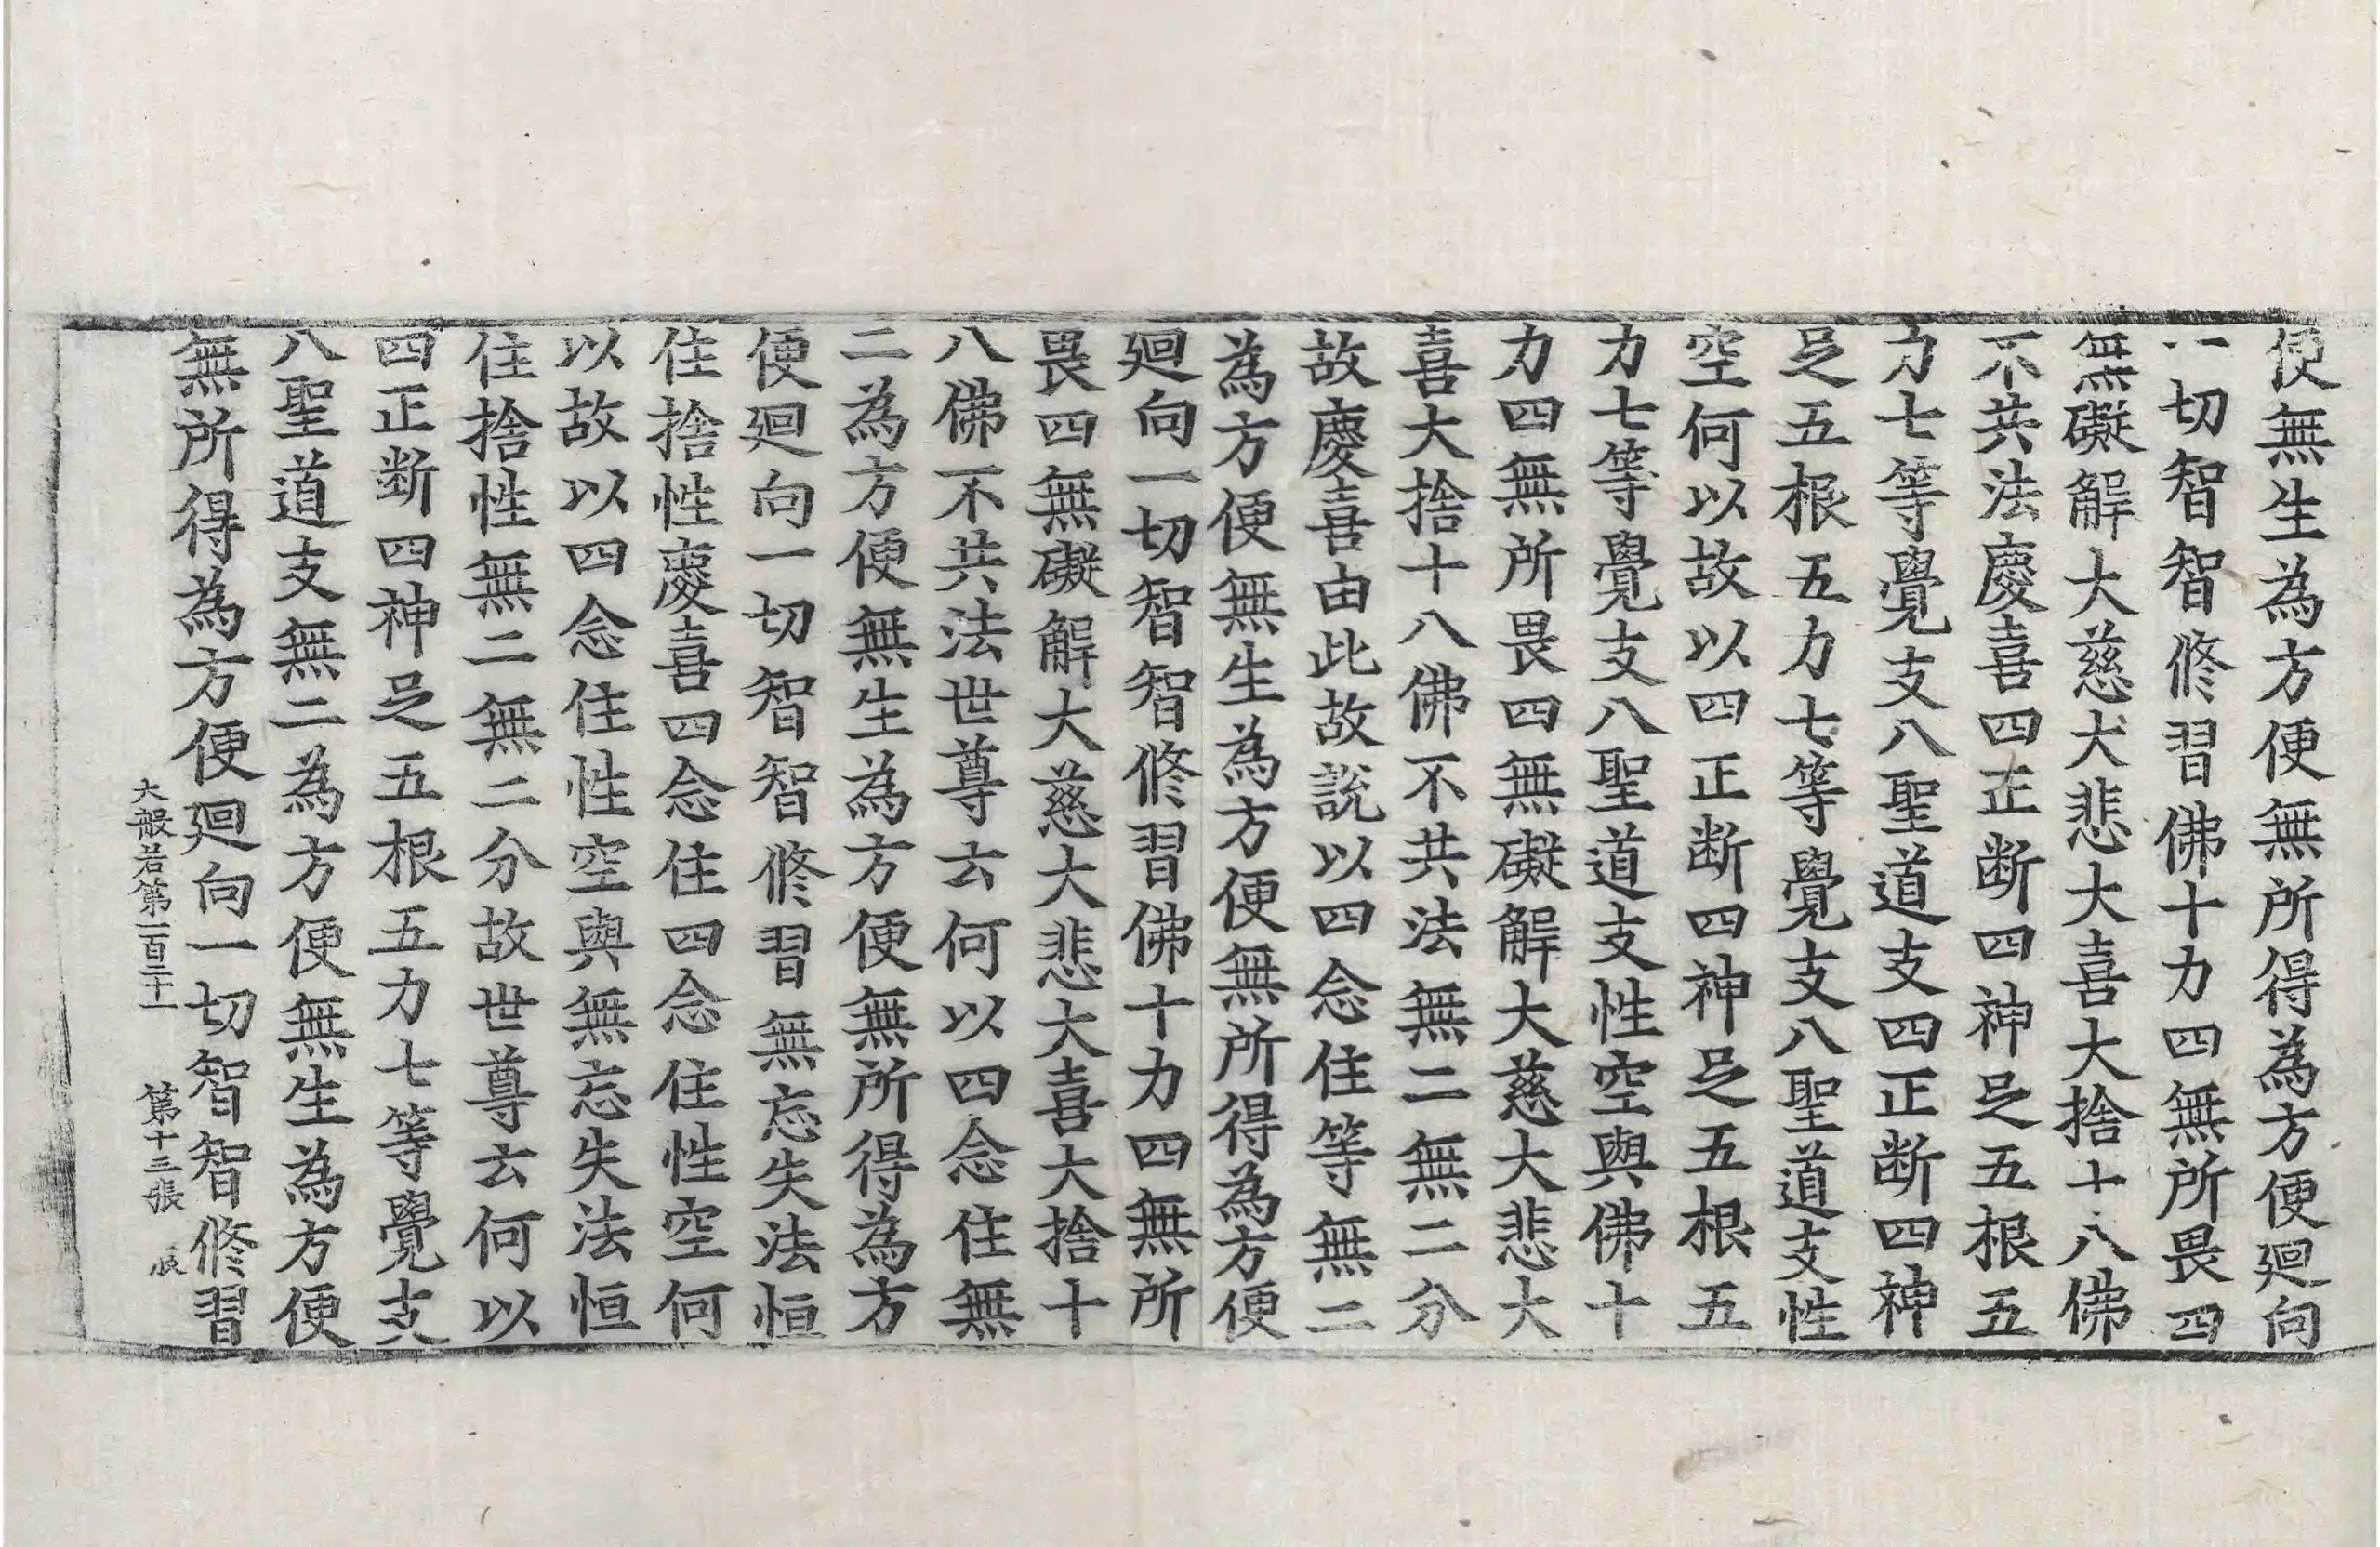 便無生為方便無所得為方便廻向
一切智智修習佛十力四無所畏四
無礙解大慈大悲大喜大捨十八佛
不共法慶喜四正断四神足五根五
力七等覺支八聖道支四正断四神
足五根五力七等覺支八聖道支性
空何以故以四正断四神足五根五
力七等覺支八聖道支性空與佛十
力四無所畏四無礙解大慈大悲大
喜大捨十八佛不共法無二無二分
故慶喜由此故說以四念住等無二
為方便無生為方便無所得為方便
廻向一切智智修習佛十力四無所
畏四無礙解大慈大悲大喜大捨十
八佛不共法世尊云何以四念住無
二為方便無生為方便無所得為方
便廻向一切智智修習無忘失法恒
住捨性慶喜四念住四念住性空何
以故以四念住性空與無忘失法恒
住捨性無二無二分故世尊云何以
四正断四神足五根五力七等覺支
八聖道支無二為方便無生為方便
無所得為方便廻向一切智智修習
大般若第一百二十一 第十三張 辰